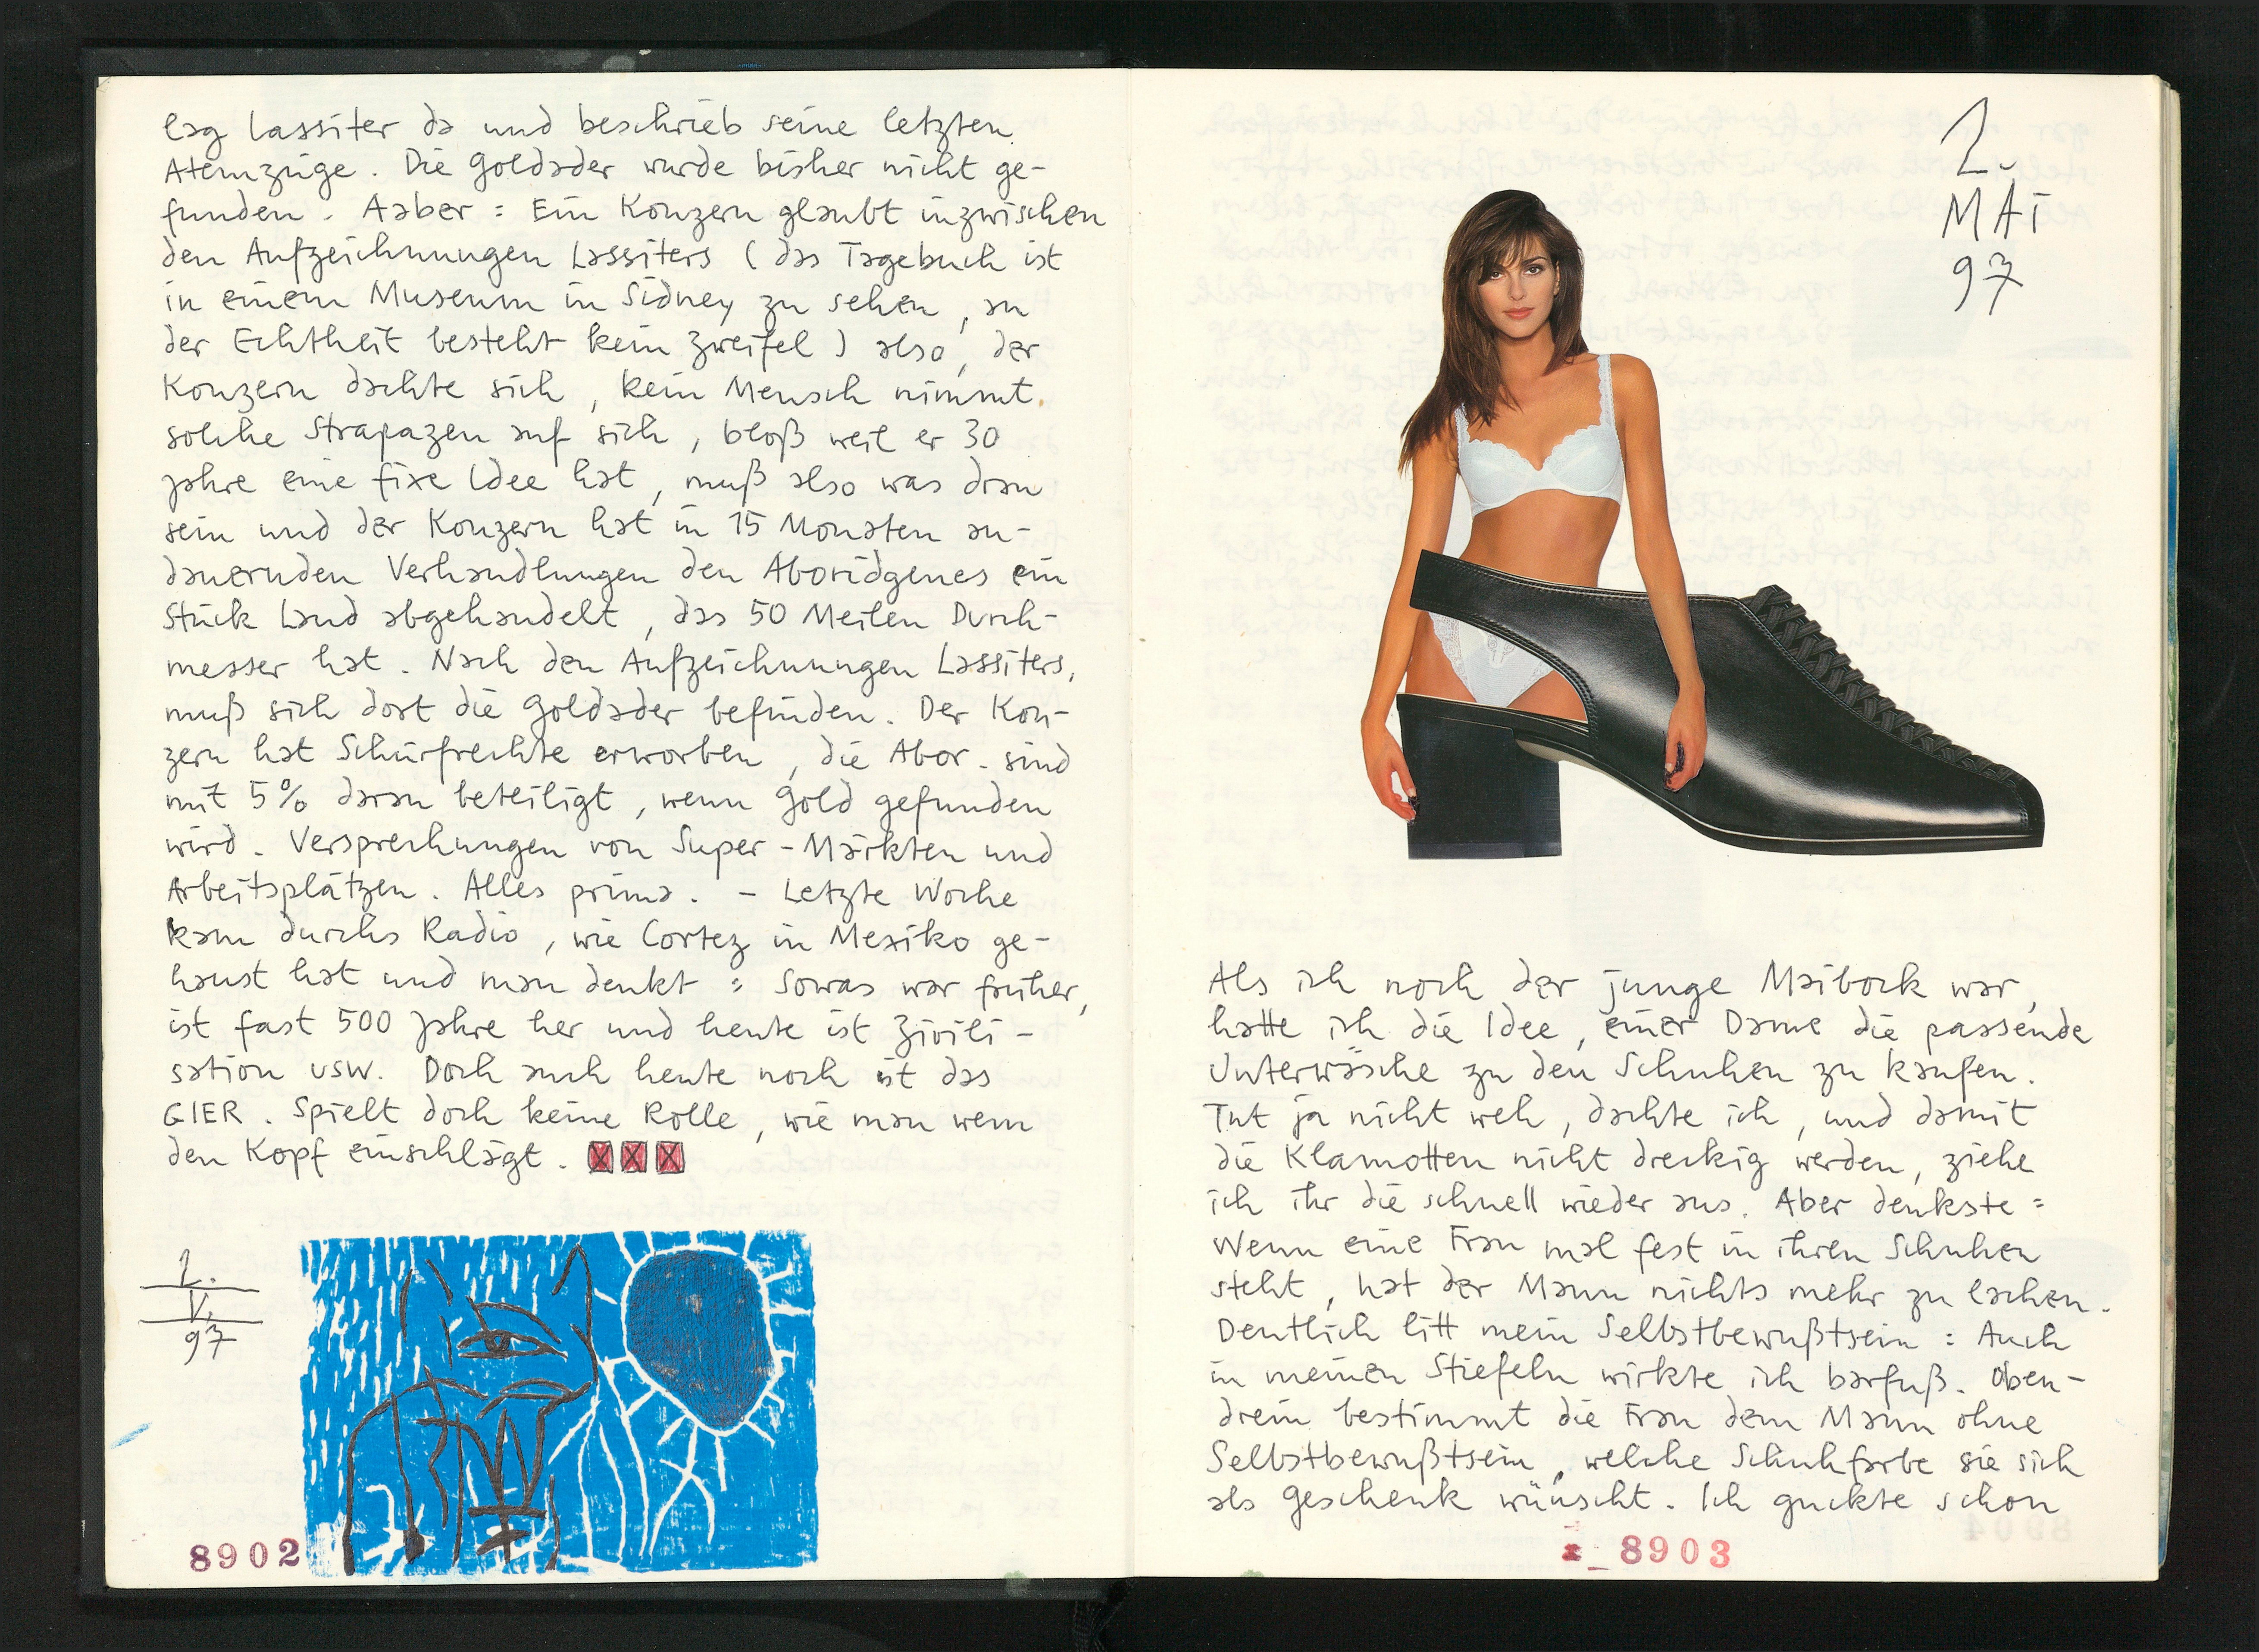 lag Lassiter da und beschrieb seine letzten
Atemzüge. Die Goldader wurde bisher nicht ge-
funden. Aaber: Ein Konzern glaubt inzwischen
den Aufzeichnungen Lassiters (das Tagebuch ist
in einem Museum in Sidney zu sehen, an
der Echtheit besteht kein Zweifel) also, der
Konzern dachte sich, kein Mensch nimmt
solche Strapazen auf sich, bloß weil er 30
Jahre eine fixe Idee hat, muß also was dran
sein und der Konzern hat in 15 Monaten an-
dauernden Verhandlungen den Aboridgenes ein
Stück Land abgehandelt, das 50 Meilen Durch-
messer hat. Nach den Aufzeichnungen Lassiters,
muß sich dort die Goldader befinden. Der Kon-
zern hat Schürfrechte erworben, die Abor. sind
mit 5% daran beteiligt, wenn Gold gefunden
wird. Versprechungen von Super-Märkten und
Arbeitsplätzen. Alles prima. - Letzte Woche
kam durchs Radio, wie Cortez in Mexiko ge-
haust hat und man denkt: Sowas war früher,
ist fast 500 Jahre her und heute ist Zivili-
sation usw. Doch auch heute noch ist das
GIER. Spielt doch keine Rolle, wie man wem
den Kopf einschlägt. XXX
1.
V.
97
8902
2.
MAI
97
Als ich noch der junge Maibock war,
hatte ich die Idee, einer Dame die passende
Unterwäsche zu den Schuhen zu kaufen.
Tut ja nicht weh, dachte ich, und damit
die Klamotten nicht dreckig werden, ziehe
ich ihr die schnell wieder aus. Aber denkste:
Wenn eine Frau mal fest in ihren Schuhen
steht, hat der Mann nichts mehr zu lachen.
Deutlich litt mein Selbstbewußtsein: Auch
in meinen Stiefeln wirkte ich barfuß. Oben-
drein bestimmt die Frau dem Mann ohne
Selbstbewußtsein, welche Schuhfarbe sie sich
als Geschenk wünscht. Ich guckte schon
8903